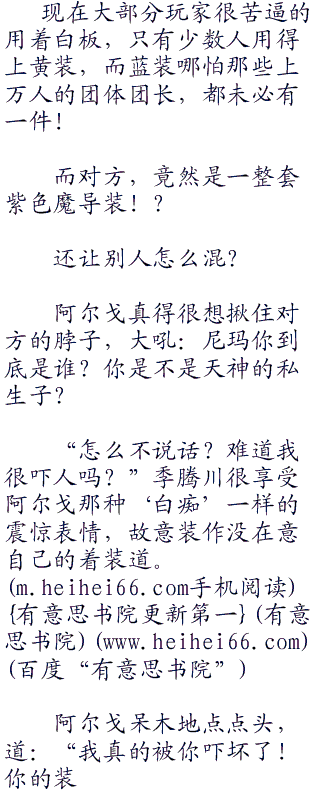 现在大部分玩家很苦逼的
用着白板，只有少数人用得
上黄装，而蓝装哪怕那些上
万人的团体团长，都未必有
一件！
而对方，竟然是一整套
紫色魔导装！？
还让别人怎么混？
阿尔戈真得很想揪住对
方的脖子，大吼：尼玛你到
底是谁？你是不是天神的私
生子？
“怎么不说话？难道我
很吓人吗？”季腾川很享受
阿尔戈那种‘白痴’一样的
震惊表情，故意装作没在意
自己的着装道。
(m.heihei66.com手机阅读)
{有意思书院更新第一}(有意
思书院)(www.heihei66.com)
(百度“有意思书院”)
阿尔戈呆木地点点头，
道：“我真的被你吓坏了！
你的装